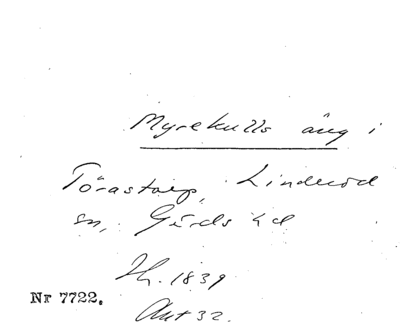 Myrekulls äng i
Törastorp, Linderöd
sn, Gärds hd
Sk. 1839
Akt 32.
Nr 7722.